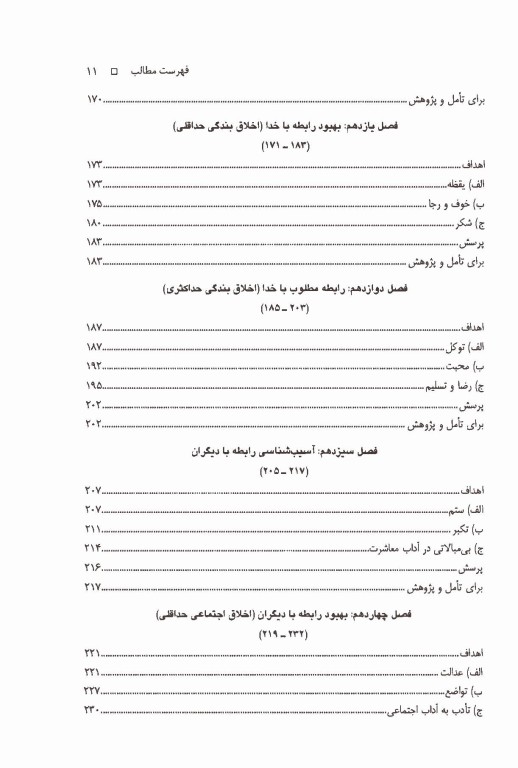 فهرست مطالب □ ۱۱
برای تأمل و پژوهش ..... ۱۷۰
فصل یازدهم: بهبود رابطه با خدا (اخلاق بندگی حداقلی)
(۱۷۱ ــ ۱۸۳)
اهداف ..... ۱۷۳
الف) یقظه ..... ۱۷۳
ب) خوف و رجا ..... ۱۷۵
ج) شکر ..... ۱۸۰
پرسش ..... ۱۸۳
برای تأمل و پژوهش ..... ۱۸۳
فصل دوازدهم: رابطه مطلوب با خدا (اخلاق بندگی حداکثری)
(۱۸۵ ــ ۲۰۳)
اهداف ..... ۱۸۷
الف) توکل ..... ۱۸۷
ب) محبت ..... ۱۹۲
ج) رضا و تسلیم ..... ۱۹۵
پرسش ..... ۲۰۲
برای تأمل و پژوهش ..... ۲۰۲
فصل سیزدهم: آسیب‌شناسی رابطه با دیگران
(۲۰۵ ــ ۲۱۷)
اهداف ..... ۲۰۷
الف) ستم ..... ۲۰۷
ب) تکبر ..... ۲۱۱
ج) بی‌مبالاتی در آداب معاشرت ..... ۲۱۴
پرسش ..... ۲۱۶
برای تأمل و پژوهش ..... ۲۱۷
فصل چهاردهم: بهبود رابطه با دیگران (اخلاق اجتماعی حداقلی)
(۲۱۹ ــ ۲۳۲)
اهداف ..... ۲۲۱
الف) عدالت ..... ۲۲۱
ب) تواضع ..... ۲۲۷
ج) تأدب به آداب اجتماعی ..... ۲۳۰